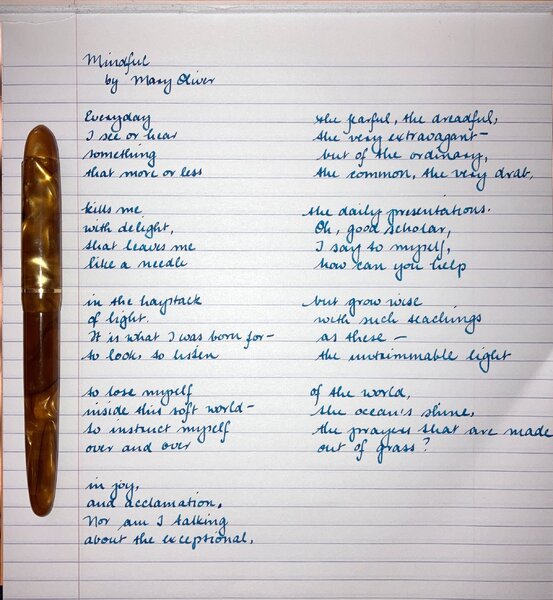 Mindful
by Mary Oliver
Everyday
I see or hear
something
that more or less
kills me
with delight,
that leaves me
like a needle
in the haystack
of light.
It is what I was born for—
to look, to listen
to lose myself
inside this soft world—
to instruct myself
over and over
in joy,
and acclamation.
Nor am I talking
about the exceptional,
the fearful, the dreadful,
the very extravagant—
but of the ordinary,
the common, the very drab,
the daily presentations.
Oh, good scholar,
I say to myself,
how can you help
but grow wise
with such teachings
as these—
the untrimmable light
of the world,
the ocean's shine,
the prayers that are made
out of grass?